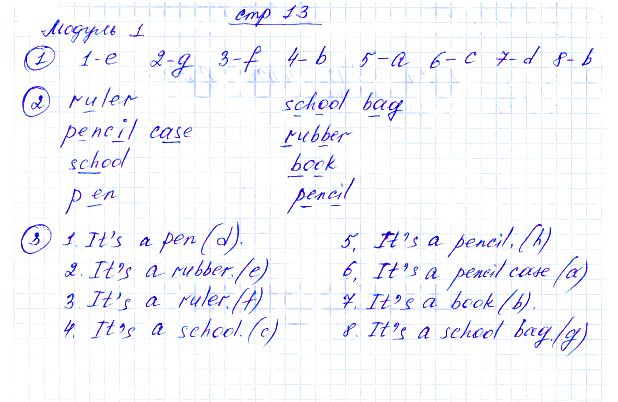 стр 13
Модуль 1
1 1-e 2-g 3-f 4-b 5-a 6-c 7-d 8-b
2 ruler school bag
pencil case rubber
school book
pen pencil
3 1. It's a pen (d). 5, It's a pencil. (h)
2. It's a rubber. (e) 6, It's a pencil case (a)
3 It's a ruler. (f) 7. It's a book (b).
4. It's a school. (c) 8. It's a school bag. (g)